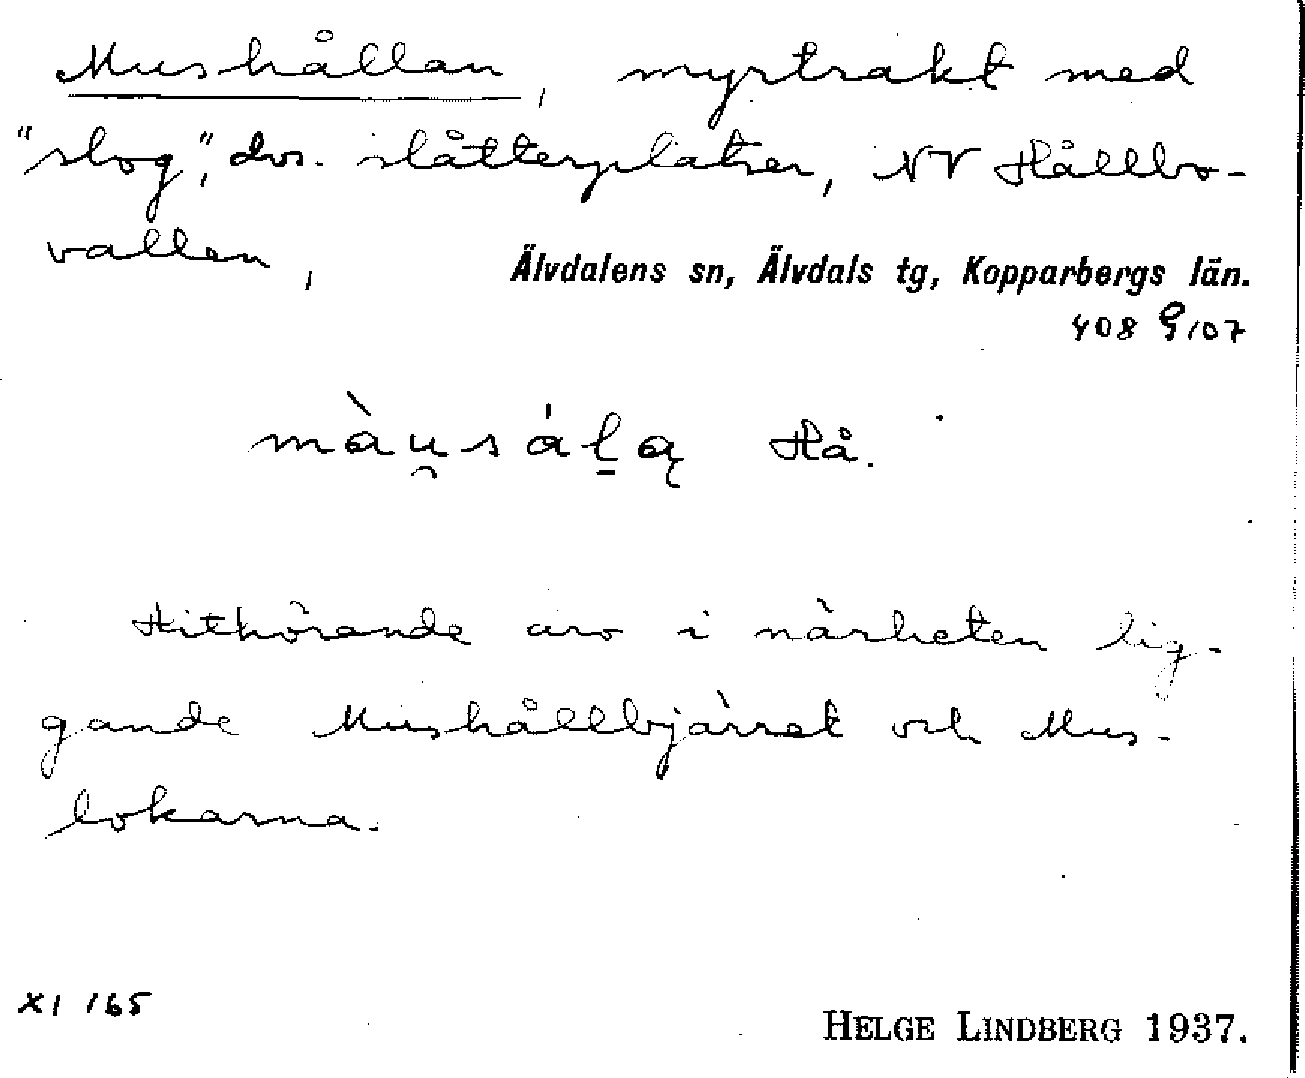 Mushållan, myrtrakt med
"slog", dvs. slåtterplatser, NV Hållbo-
vallen,
Älvdalens sn, Älvdals tg, Kopparbergs län.
408 107
màu̯sáḻą Hå.
Hithörande äro i närheten lig-
gande Mushållbjärret och Mus-
lokarna.
XI 165
HELGE LINDBERG 1937.